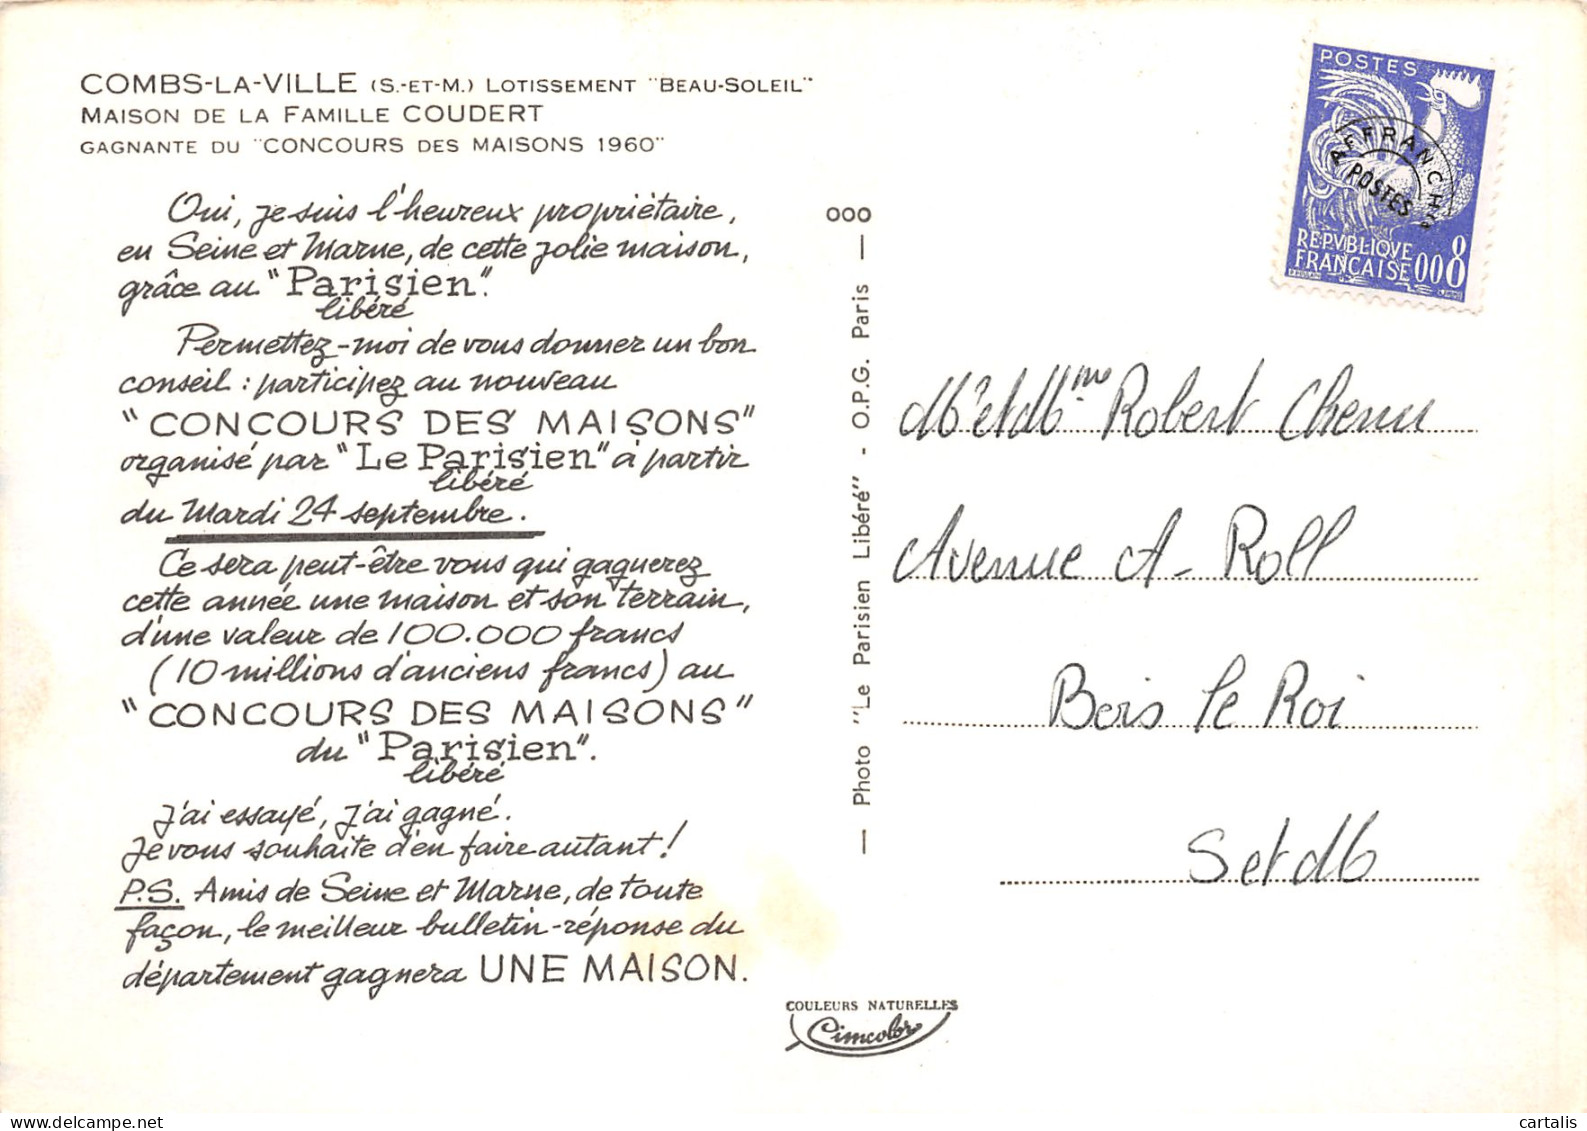 COMBS-LA-VILLE (S.-ET-M.) LOTISSEMENT "BEAU-SOLEIL"
MAISON DE LA FAMILLE COUDERT
GAGNANTE DU "CONCOURS DES MAISONS 1960"
Oui, je suis l'heureux propriétaire,
en Seine et Marne, de cette jolie maison,
grâce au "Parisien".
libéré
Permettez-moi de vous donner un bon
conseil : participez au nouveau
"CONCOURS DES MAISONS"
organisé par "Le Parisien" à partir
libéré
du Mardi 24 septembre.
Ce sera peut-être vous qui gagnerez
cette année une maison et son terrain,
d'une valeur de 100.000 francs
(10 millions d'anciens francs) au
"CONCOURS DES MAISONS"
du "Parisien".
libéré
J'ai essayé, j'ai gagné.
Je vous souhaite d'en faire autant !
P.S. Amis de Seine et Marne, de toute
façon, le meilleur bulletin-réponse du
département gagnera UNE MAISON.
000
— Photo "Le Parisien Libéré" - O.P.G. Paris —
COULEURS NATURELLES
Cimcolor
POSTES
AFFRANCHts
POSTES
REPVBLIQVE
FRANÇAISE 008
Mr et Mme Robert Chenu
Avenue A- Roll
Bois le Roi
S et M
24-09-2024
cartalis